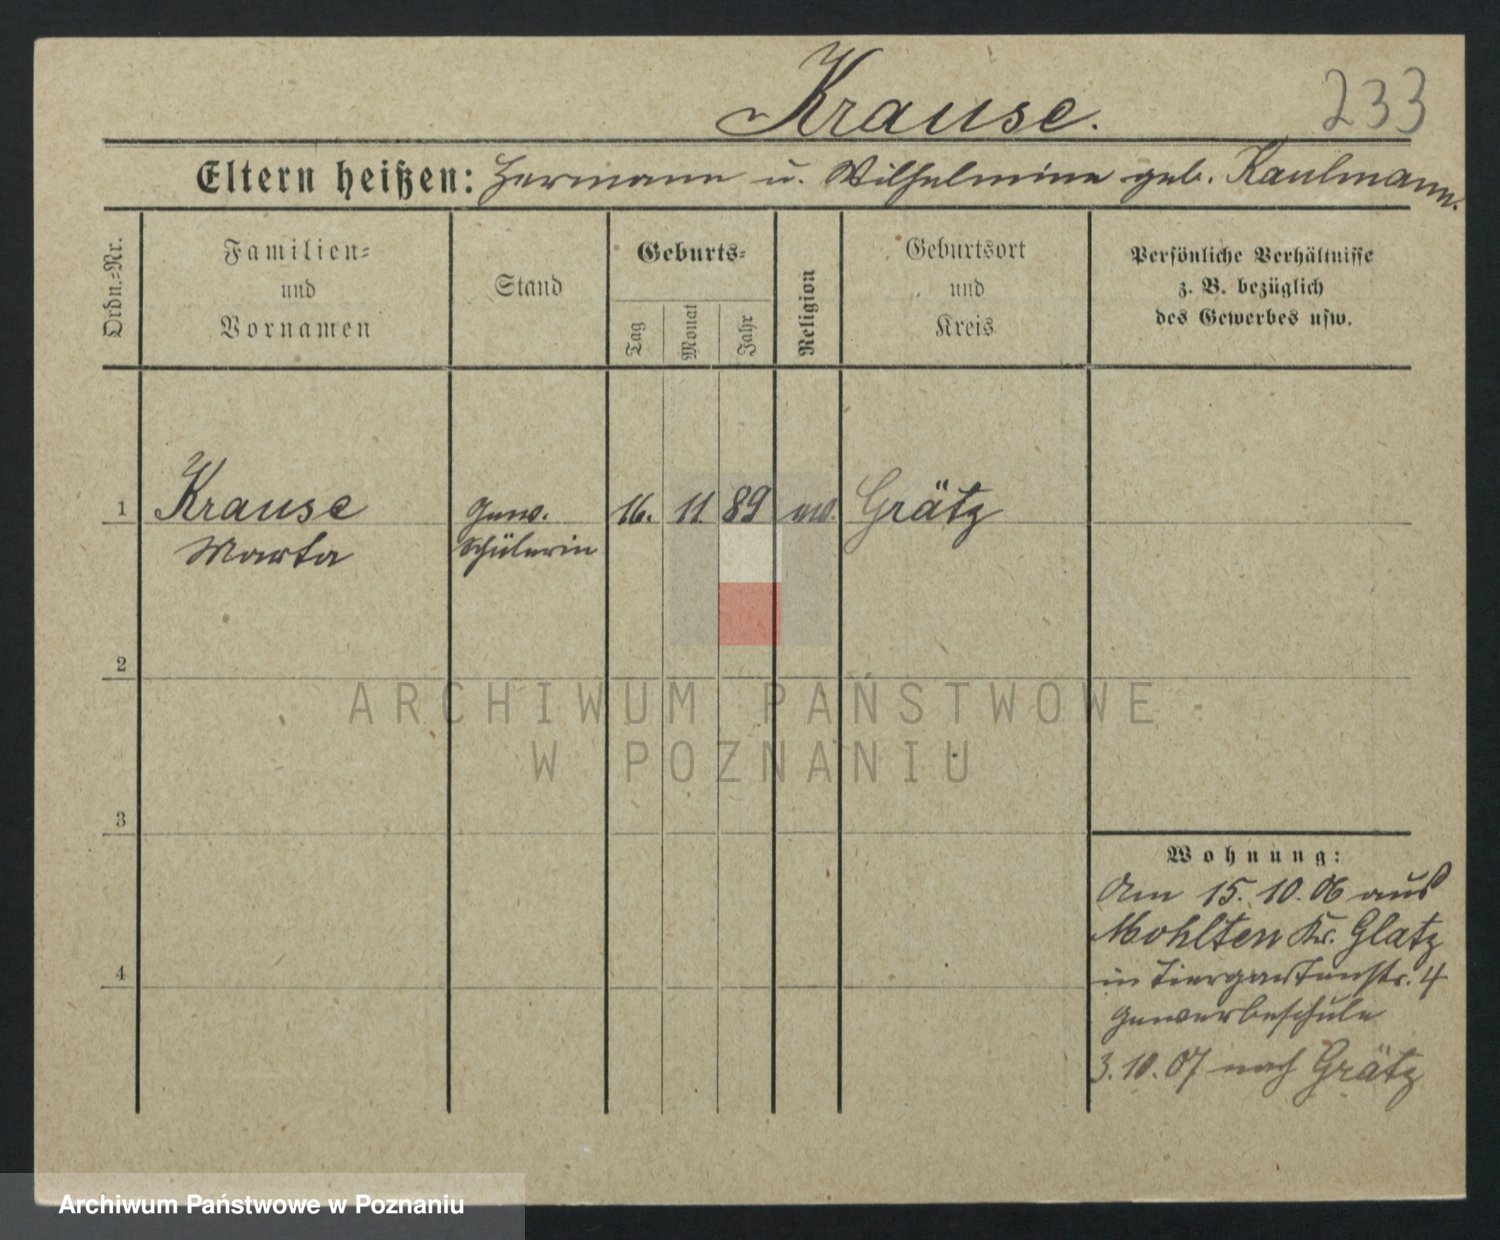 Krause. 233
Eltern heißen: Hermann u. Wilhelmine geb. Kaulmann.
Ordn.-Nr.
Familien-
und
Vornamen
Stand
Geburts-
Tag
Monat
Jahr
Religion
Geburtsort
und
Kreis
Persönliche Verhältnisse
z. B. bezüglich
des Gewerbes usw.
1 Krause Gew. 16. 11. 89 ev. Grätz
Marta Schülerin
2
ARCHIWUM PAŃSTWOWE
W POZNANIU
3
Wohnung:
Am 15. 10. 06 aus
Mohlten Kr. Glatz
4
in Tiergartenstr. 4
Gewerbeschule
3. 10. 07 nach Grätz
Archiwum Państwowe w Poznaniu